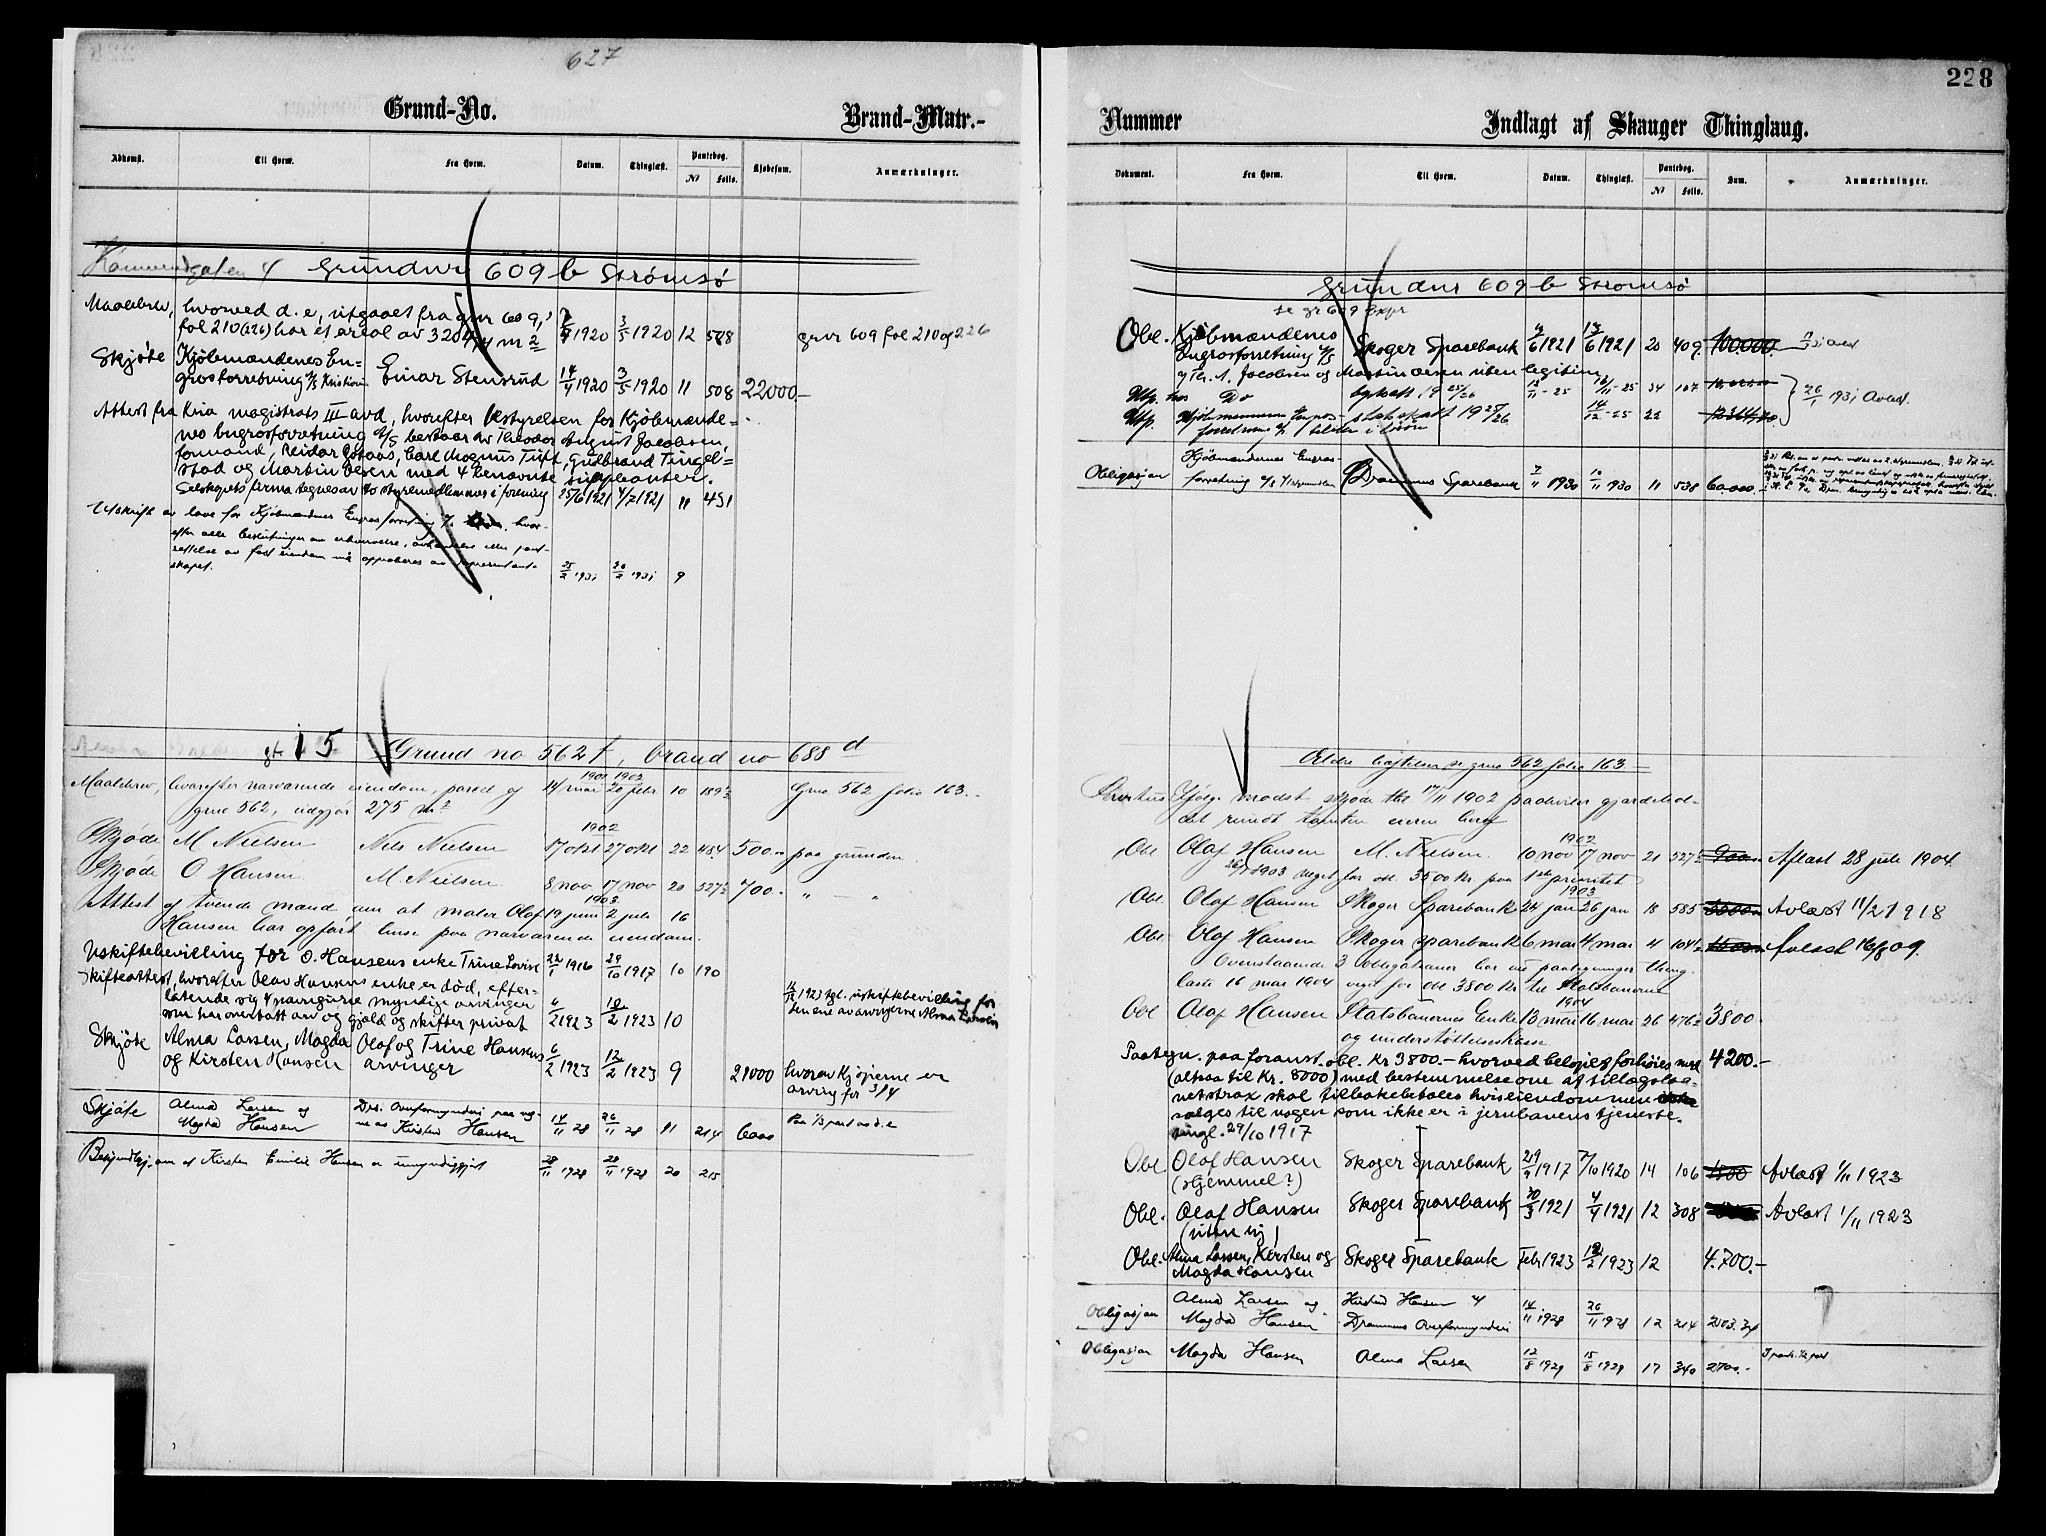 627
Grund-No.
Brand-Matr.-
Adkomst. Til Hvem. Fra Hvem. Datum. Thinglæst. Pantebog. No Folio. Kjøbesum. Anmærkninger.
4 Grundnr 609 b Strømsø
Maalebrev, hvorved d. e, utgaaet fra gnr 609,
fol 210(226) har et areal av m2 1920 3/5 1920 12 grnr 609 fol 210 og 226
Skjøte Kjøbmændenes En-
grosforretning a/s Kristiania Einar Stensrud 14/4 1920 3/5 1920 11 508 22000.-
Attest fra Kria magistrats III avd, hvorefter bestyrelsen for Kjøbmænde-
nes Engrosforretning a/s bestaar av Theodor August Jacobsen,
formand, Reidar Carl Magnus Tuft, Gudbrand Tingel-
stad og Martin Olsen med 4 benævnte suppleanter.
Selskapets firma tegnes av to styremedlemmer i forening 25/6 1921 4/7 1921 11 451
Utskrift av love for Kjøbmændenes Engrosforretning a/s hvor-
efter alle beslutninger om erhvervelse, avhændelse eller pant-
sættelse av fast eiendom må approberes av representant-
skapet. 25/2 1931 26/2 1931 9
15 Grund no 562 f, brand no 688 d
Maalebrev, hvorefter nærværende eiendom, parcel af 14 mai 1901 20 febr 1902 10 189 Grno 562 folio 163.
grno 562, udgjør 275 m2
Skjøde M Nielsen Nels Nielsen 17 okt 1902 27 okt 22 484 500.- paa grunden
Skjøde O Hansen M. Nielsen 8 nov 17 nov 20 527 700.- " - "
Attest af tvende mænd om at maler Olaf 19 juni 1903 2 juli 16
Hansen har opført huse paa nærværende eiendom.
Uskiftebevilling for O. Hansens enke Trine Lovise 22/1 1916 29/10 1917 10 190
Skifteattest, hvorefter Olav Hansens enke er død, efter-
latende sig 4 navngivne myndige arvinger
som har overtatt arv og gjæld og skifter privat 6/2 1923 12/2 1923 10
1923 tgl. uskiftebevilling for
den ene av arvingerne Alma Larsen
Skjøte Alma Larsen, Magda Olaf og Trine Hansens
og Kirsten Hansen arvinger 6/2 1923 12/2 1923 9 21000 hvorav kjøperne er
arving for 3/4
Skjøte Alma Larsen og Drs. Overformynderi paa veg-
Magda Hansen ne av Kirsten Hansen 14/11 28 26/11 28 11 214 6000 Paa 1/3 part av d.e
Bekjendtgj. om at Kirsten Emilie Hansen er umyndiggjort 28/11 1928 28/11 1928 20 215
228
Nummer
Indlagt af Skauger Thinglaug.
Dokument. Fra Hvem. Til Hvem. Datum. Thinglæst. Pantebog. No Folio. Sum. Anmærkninger.
Grundnr 609 b Strømsø
se gr 609
Obl. Kjøbmændenes
Engrosforretning a/s Skoger Sparebank 4/6 1921 13/6 1921 20 409. 100000.
v/ Th. A. Jacobsen og Martin Olsen uten legitim.
Utp. hos Do bykatt 1925/26 12/11-25 16/11-25 34 107 26/1 1931 Avlest.
Utp. Kjøbmennenes Engros- statskatt 1925/26 14/12-25 22
forretning a/s
Obligasjon Kjøbmændenes Engros-
forretning a/s Drammens Sparebank 7/11 1930 10/11 1930 11 538 60000.
Ældre hæftelser se grno 562 folio 163.
Servitus Ifølge modst. skjøde thl 17/11 1902 paahviler gjerdehold-
det rundt tomten eieren heraf
Obl Olaf Hansen M. Nielsen. 10 nov 1902 17 nov 21 527 900 Aflæst 28 juli 1904
1903 veget for obl. 3500 kr. paa 1ste prioritet
Obl Olaf Hansen Skoger Sparebank 24 jan 1903 26 jan 18 585 Avlæst 11/2 1918
Obl Olaf Hansen Skoger Sparebank 6 mai 4 mai 4 104 Avlæst 16/8 09.
Ovenstaaende 3 obligationer har iflg paategninger thing-
læste 16 mai 1904 veget for obl 3800 kr. til Statsbanerne
Obl Olaf Hansen Statsbanernes Enke 13 mai 1904 16 mai 26 476 3800
og understøttelseskasse
Paategn. paa foranst. obl. Kr 3800.- hvorved beløpet forhøies med 4200.-
(altsaa til Kr. 8000) med bestemmelse om at tillægslaa-
net strax skal tilbakebetales hvis eiendommen
sælges til nogen som ikke er i jernbanens tjeneste.
tingl. 29/10 1917
Obl. Olaf Hansen Skoger Sparebank 29/9 1917 7/10 1920 14 106 1800 Avlæst 1/11 1923
(Hjemmel?)
Obl. Olaf Hansen Skoger Sparebank 30/3 1921 4/4 1921 12 308 Avlæst 1/11 1923
Obl. Alma Larsen, Kirsten og Skoger Sparebank Febr 1923 12/2 1923 12 4.700.-
Magda Hansen
Obligasjon Alma Larsen og Kirsten Hansen v/
Magda Hansen Drammens Overformynderi 14/11 1928 26/11 1928 12 214 2103.34
Obligasjon Magda Hansen Alma Larsen 12/8 1929 15/8 1929 17 340 2700.-